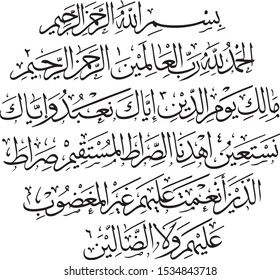 بِسْمِ اللَّهِ الرَّحْمَنِ الرَّحِيمِ
الْحَمْدُ لِلَّهِ رَبِّ الْعَالَمِينَ الرَّحْمَنِ الرَّحِيمِ
مَالِكِ يَوْمِ الدِّينِ إِيَّاكَ نَعْبُدُ وَإِيَّاكَ
نَسْتَعِينُ اهْدِنَا الصِّرَاطَ الْمُسْتَقِيمَ صِرَاطَ
الَّذِينَ أَنْعَمْتَ عَلَيْهِمْ غَيْرِ الْمَغْضُوبِ
عَلَيْهِمْ وَلَا الضَّالِّينَ
shutterstock.com · 1534843718